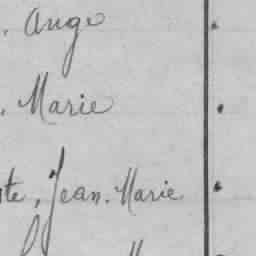 . Ange
. Marie
te, Jean-Marie